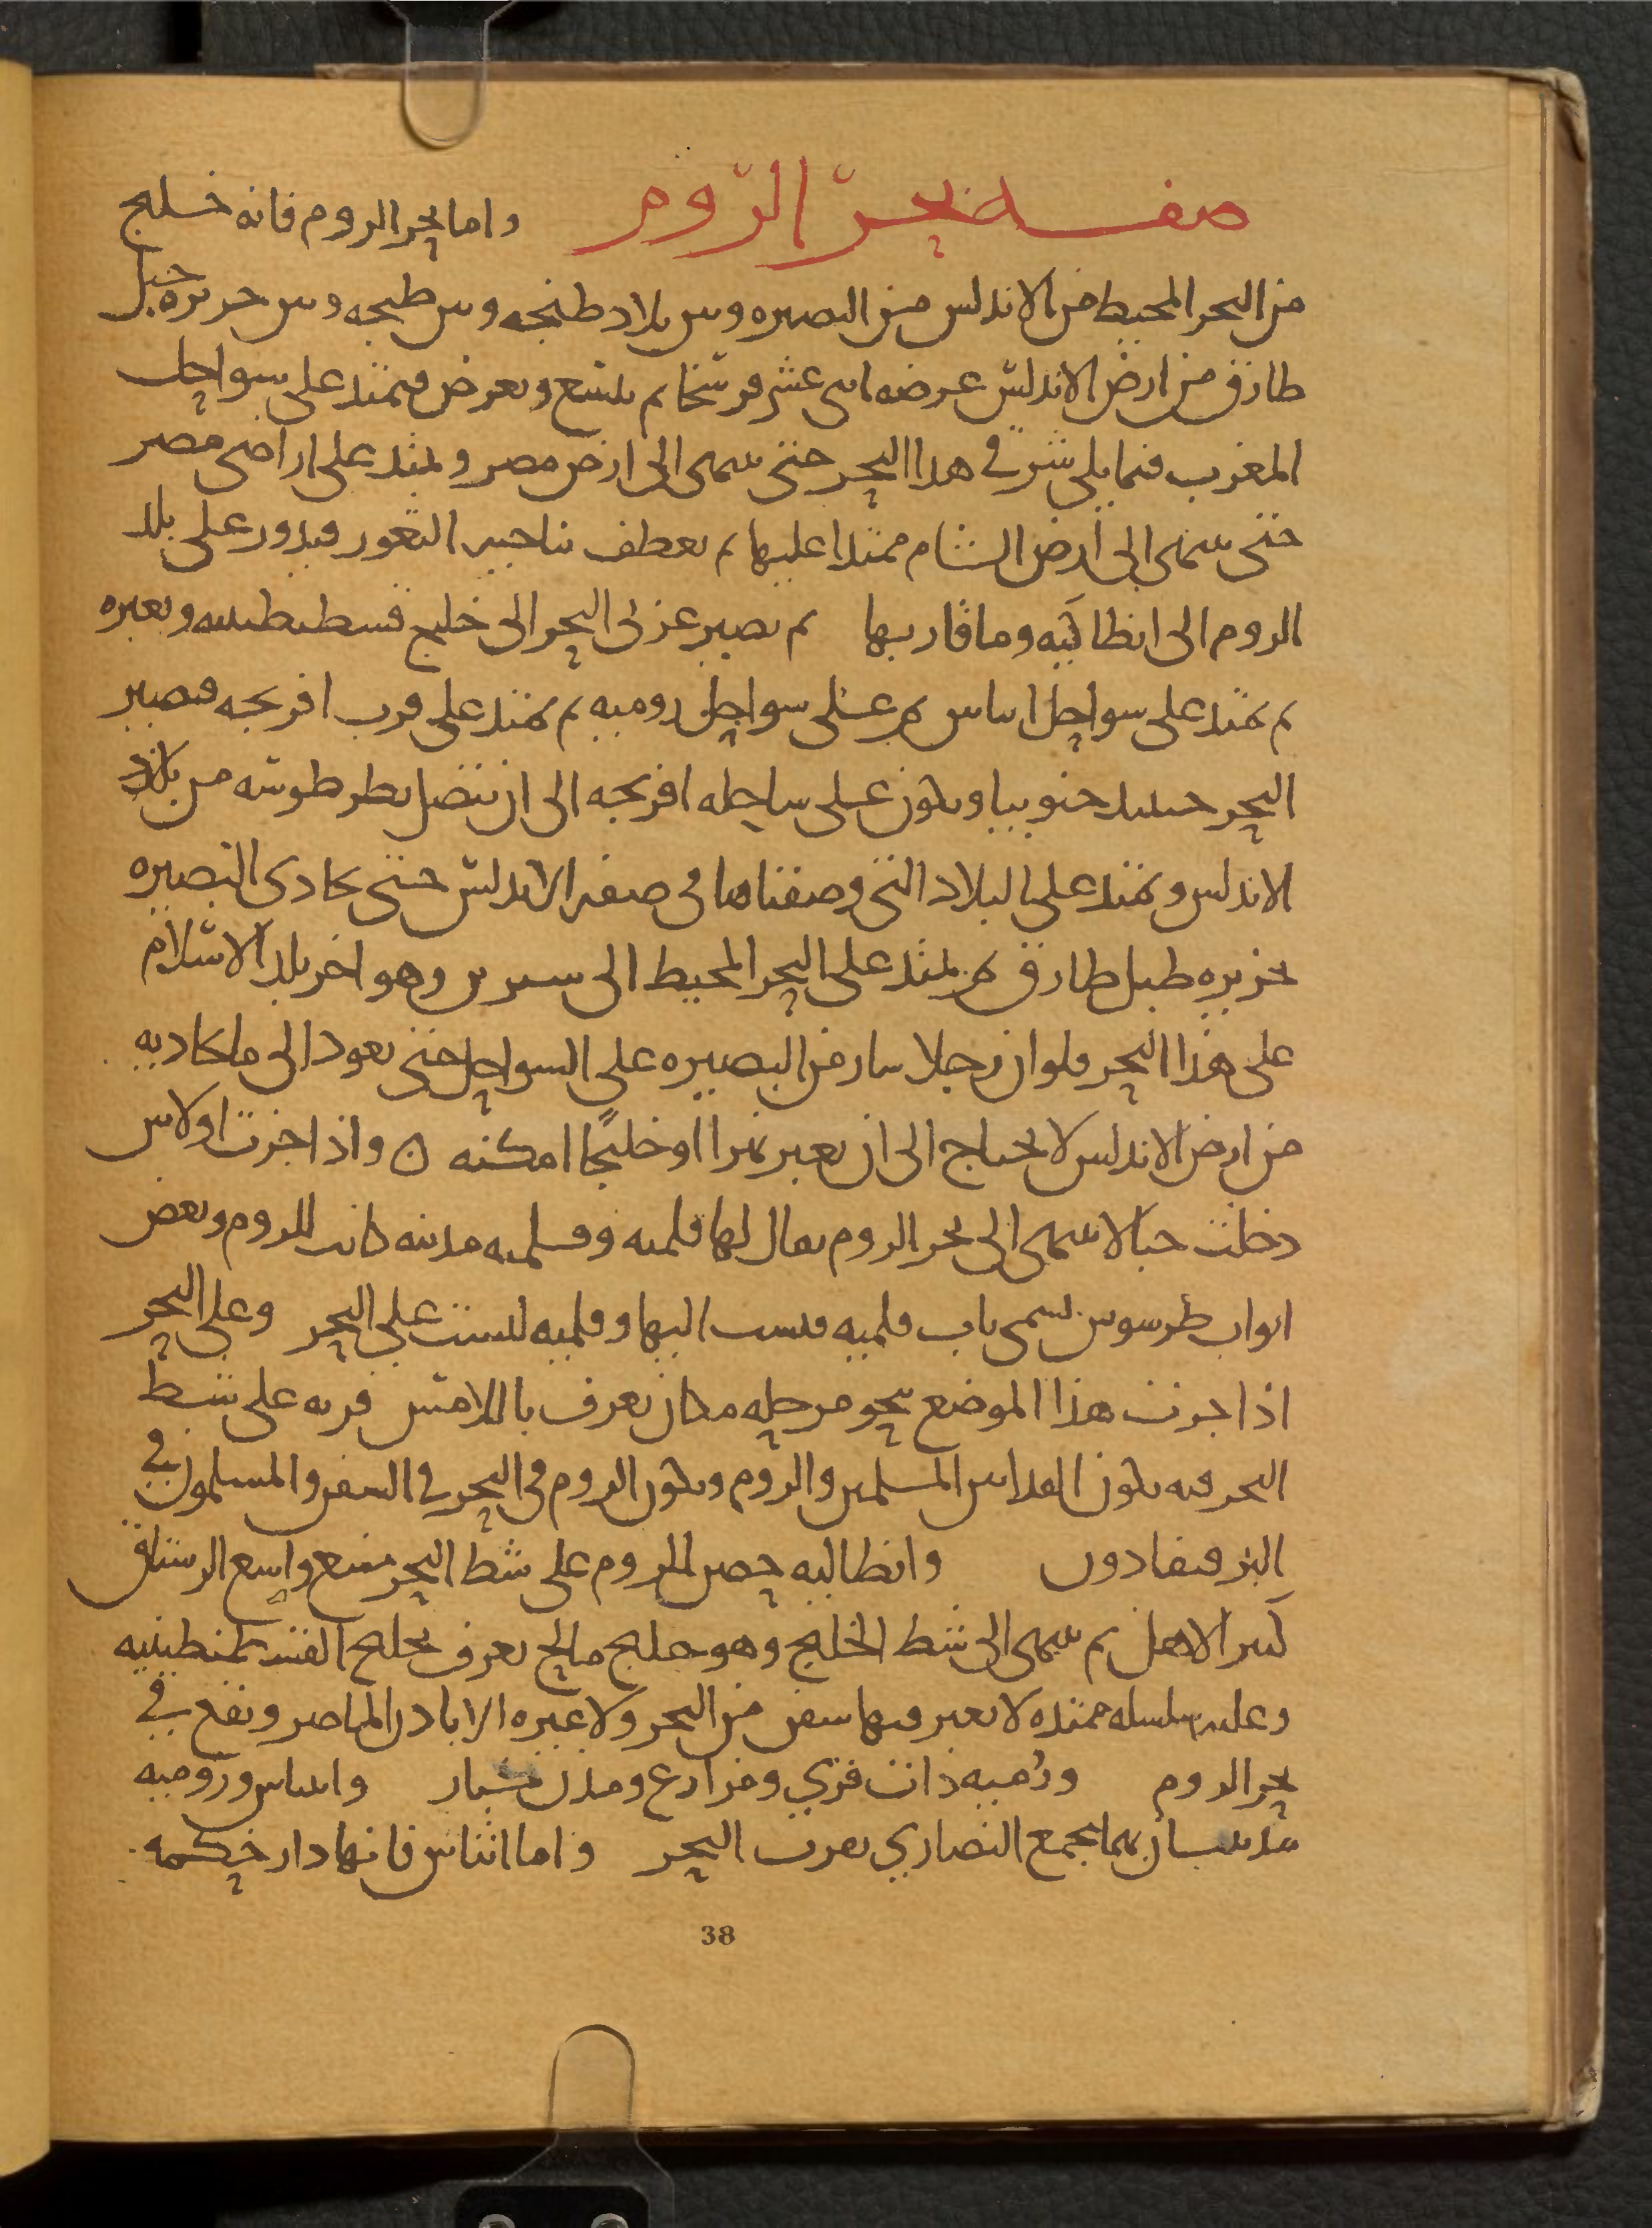 صفة بحر الرّوم واما بحر الروم فانه خليج
من البحر المحيط من الاندلس من البصيره وبين بلاد طنجه وبين طنجه وبين جزيره جبل
طارق من ارض الاندلس عرضه اثنى عشر فرسخا ثم يتسع ويعرض فيمتد على سواحل
المغرب فيما يلى شرقي هذا البحر حتى ينتهى الى ارض مصر ويمتد على اراضى مصر
حتى ينتهى الى ارض الشام ممتدا عليها ثم يعطف بناحيه الثغور فيدور على بلد
الروم الى انطاكيه وما قاربها ثم يصير غربى البحر الى خليج قسطنطينيه ويعبره
ثم يمتد على سواحل اثناس ثم على سواحل روميه ثم يمتد على قرب افرنجه فيصير
البحر حينئذ جنوبيا ويكون على ساحله افرنجه الى ان يتصل بطرطوشه من بلاد
الاندلس ويمتد على البلاد التى وصفناها فى صفه الاندلس حتى يحاذى البصيره
بجزيره طبل طارق ثم يمتد على البحر المحيط الى سترين وهو اخر بلد الاسلام
على هذا البحر فلو ان رجلا سار من البصيره على السواحل حتى يعود الى ما يحاذيه
من ارض الاندلس لا يحتاج الى ان يعبر نهرا او خليجًا امكنه ن واذا جزت اولاس
دخلت جبالا ينتهى الى بحر الروم يقال لها قلميه وقلميه مدينه كانت للروم وبعض
ابواب طرسوس يسمى باب قلميه فنسب اليها وقلميه ليست على البحر وعلى البحر
اذا جزت هذا الموضع بنحو مرحله مكان يعرف باللامس قريه على شط
البحر فيه يكون الفدا بين المسلمين والروم ويكون الروم فى البحر في السفن والمسلمون في
البر فيفادون وانطاليه حصن للروم على شط البحر منيع واسع الرستاق
كثير الاهل ثم ينتهى الى شط الخليج وهو خليج مالح يعرف بخليج القسطنطينيه
وعليه سلسله ممتده لا يعبر فيها سفن من البحر ولا غيره الا باذن الماصر ويقع في
بحر الروم ورُميه ذات قري ومزارع ومدن كبار واثناس وروميه
مدينتان بهما مجمع النصاري بقرب البحر واما اثناس فانها دار حكمه
38